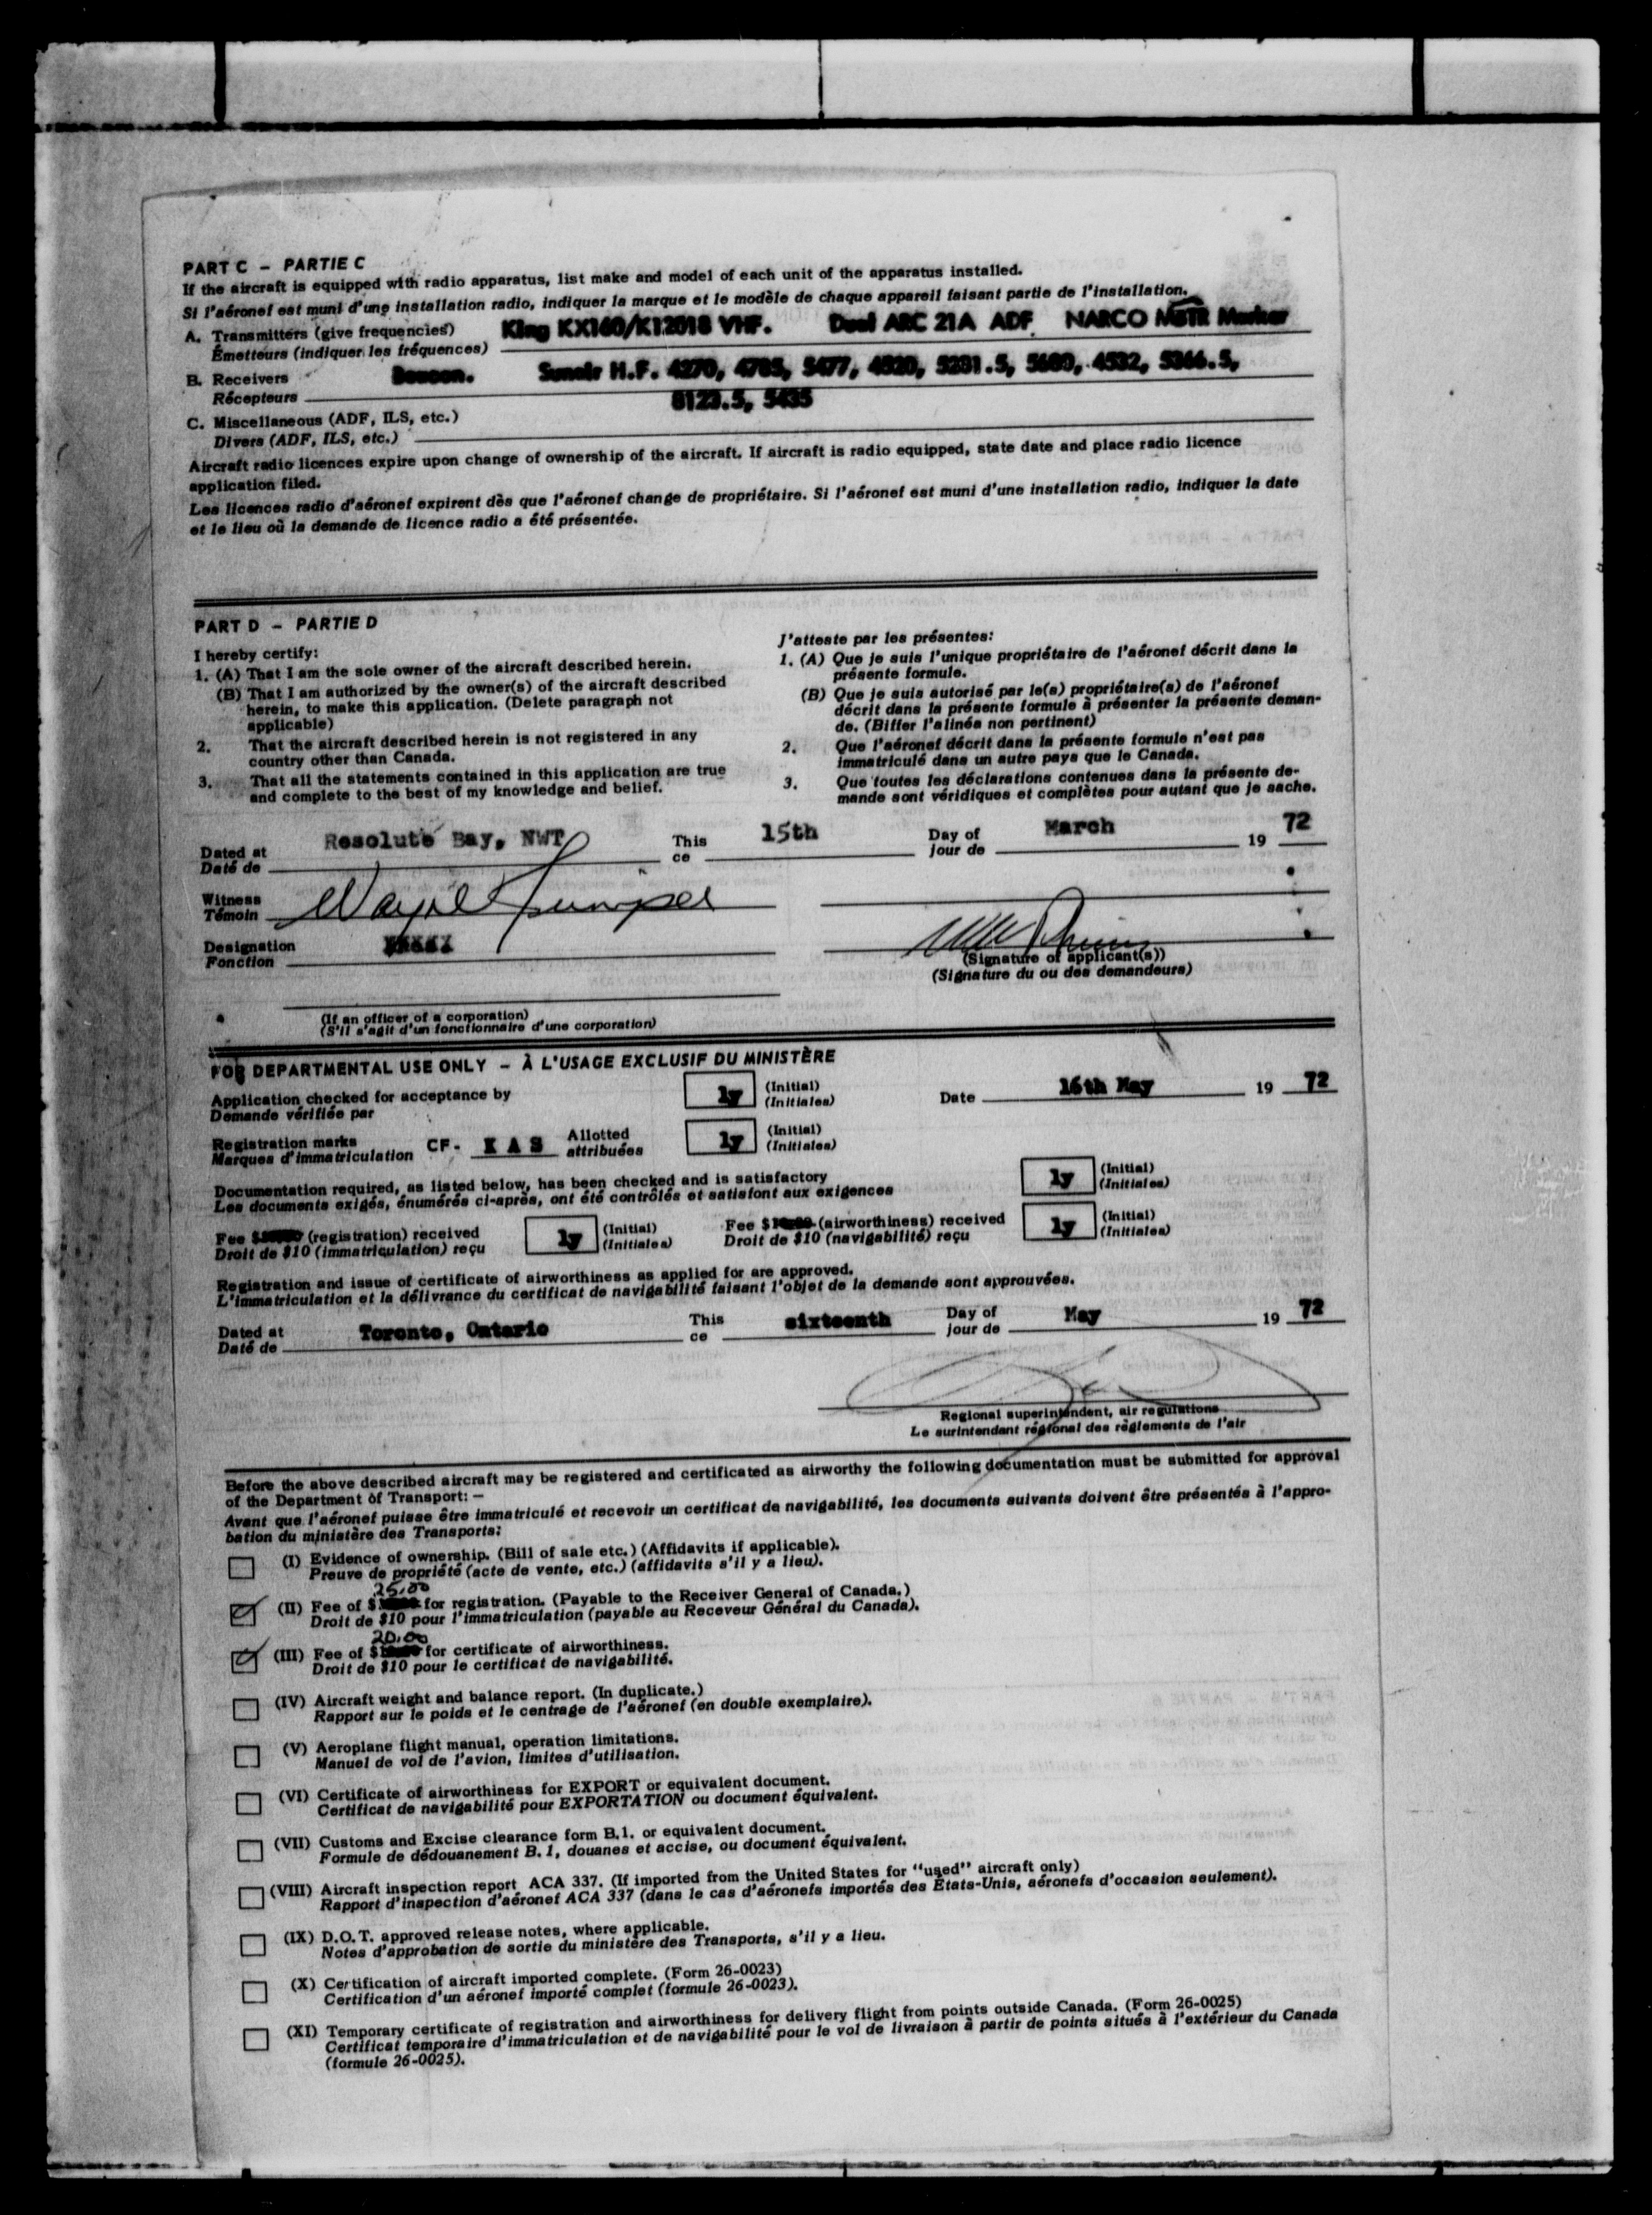 PART C - PARTIE C
If the aircraft is equipped with radio apparatus, list make and model of each unit of the apparatus installed.
Si l'aéronef est muni d'une installation radio, indiquer la marque et le modèle de chaque appareil faisant partie de l'installation.
A. Transmitters (give frequencies) King KX160/K12018 VHF. Dual ARC 21A ADF NARCO Marker
Émetteurs (indiquer les fréquences)
B. Receivers Beacon. Sunair H.F. 4270, 4785, 5477, 4520, 5281.5, 5680, 4532, 5366.5,
Récepteurs 8123.5, 5435
C. Miscellaneous (ADF, ILS, etc.)
Divers (ADF, ILS, etc.)
Aircraft radio licences expire upon change of ownership of the aircraft. If aircraft is radio equipped, state date and place radio licence
application filed.
Les licences radio d'aéronef expirent dès que l'aéronef change de propriétaire. Si l'aéronef est muni d'une installation radio, indiquer la date
et le lieu où la demande de licence radio a été présentée.
PART D - PARTIE D
I hereby certify:
1. (A) That I am the sole owner of the aircraft described herein.
(B) That I am authorized by the owner(s) of the aircraft described
herein, to make this application. (Delete paragraph not
applicable)
2. That the aircraft described herein is not registered in any
country other than Canada.
3. That all the statements contained in this application are true
and complete to the best of my knowledge and belief.
J'atteste par les présentes:
1. (A) Que je suis l'unique propriétaire de l'aéronef décrit dans la
présente formule.
(B) Que je suis autorisé par le(s) propriétaire(s) de l'aéronef
décrit dans la présente formule à présenter la présente deman-
de. (Biffer l'alinéa non pertinent)
2. Que l'aéronef décrit dans la présente formule n'est pas
immatriculé dans un autre pays que le Canada.
3. Que toutes les déclarations contenues dans la présente de-
mande sont véridiques et complètes pour autant que je sache.
Dated at Resolute Bay, NWT This 15th Day of March 19 72
Daté de ce jour de
Witness Wayne
Témoin
Designation
Fonction
(Signature of applicant(s))
(Signature du ou des demandeurs)
(If an officer of a corporation)
(S'il s'agit d'un fonctionnaire d'une corporation)
FOR DEPARTMENTAL USE ONLY - À L'USAGE EXCLUSIF DU MINISTÈRE
Application checked for acceptance by ly (Initial) Date 16th May 19 72
Demande vérifiée par (Initiales)
Registration marks CF- K A S Allotted ly (Initial)
Marques d'immatriculation attribuées (Initiales)
Documentation required, as listed below, has been checked and is satisfactory ly (Initial)
Les documents exigés, énumérés ci-après, ont été contrôlés et satisfont aux exigences (Initiales)
Fee $ (registration) received ly (Initial) Fee $ (airworthiness) received ly (Initial)
Droit de $10 (immatriculation) reçu (Initiales) Droit de $10 (navigabilité) reçu (Initiales)
Registration and issue of certificate of airworthiness as applied for are approved.
L'immatriculation et la délivrance du certificat de navigabilité faisant l'objet de la demande sont approuvées.
Dated at Toronto, Ontario This sixteenth Day of May 19 72
Daté de ce jour de
Regional superintendent, air regulations
Le surintendant régional des règlements de l'air
Before the above described aircraft may be registered and certificated as airworthy the following documentation must be submitted for approval
of the Department of Transport: -
Avant que l'aéronef puisse être immatriculé et recevoir un certificat de navigabilité, les documents suivants doivent être présentés à l'appro-
bation du ministère des Transports:
(I) Evidence of ownership. (Bill of sale etc.) (Affidavits if applicable).
Preuve de propriété (acte de vente, etc.) (affidavits s'il y a lieu).
25.00
(II) Fee of $ for registration. (Payable to the Receiver General of Canada.)
Droit de $10 pour l'immatriculation (payable au Receveur Général du Canada).
20.00
(III) Fee of $ for certificate of airworthiness.
Droit de $10 pour le certificat de navigabilité.
(IV) Aircraft weight and balance report. (In duplicate.)
Rapport sur le poids et le centrage de l'aéronef (en double exemplaire).
(V) Aeroplane flight manual, operation limitations.
Manuel de vol de l'avion, limites d'utilisation.
(VI) Certificate of airworthiness for EXPORT or equivalent document.
Certificat de navigabilité pour EXPORTATION ou document équivalent.
(VII) Customs and Excise clearance form B.1. or equivalent document.
Formule de dédouanement B.1, douanes et accise, ou document équivalent.
(VIII) Aircraft inspection report ACA 337. (If imported from the United States for "used" aircraft only)
Rapport d'inspection d'aéronef ACA 337 (dans le cas d'aéronefs importés des États-Unis, aéronefs d'occasion seulement).
(IX) D.O.T. approved release notes, where applicable.
Notes d'approbation de sortie du ministère des Transports, s'il y a lieu.
(X) Certification of aircraft imported complete. (Form 26-0023)
Certification d'un aéronef importé complet (formule 26-0023).
(XI) Temporary certificate of registration and airworthiness for delivery flight from points outside Canada. (Form 26-0025)
Certificat temporaire d'immatriculation et de navigabilité pour le vol de livraison à partir de points situés à l'extérieur du Canada
(formule 26-0025).